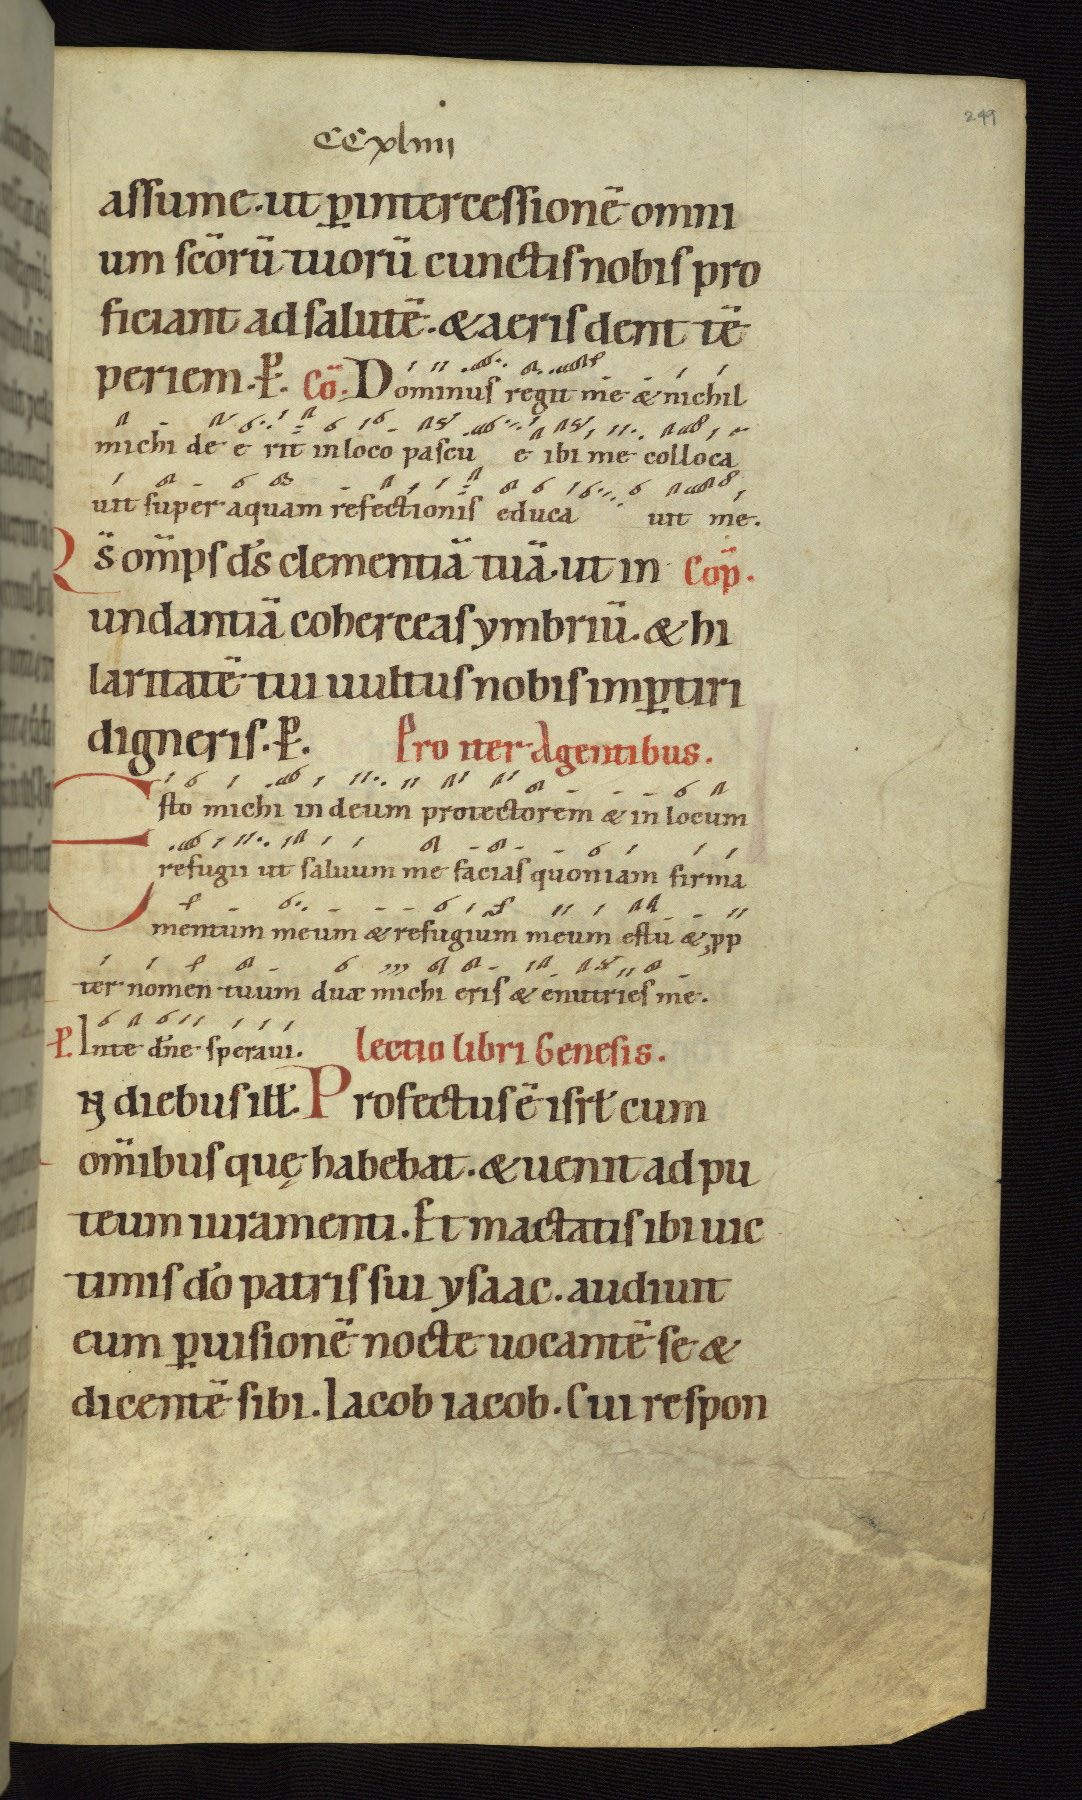 249
CCxliiii
assume. ut ꝑ intercessionē omni
um scōrū tuorū cunctis nobis pro
ficiant ad salutē. & aeris dent tē
periem. P. Cō. Dominus regit me & nichil
michi de e rit in loco pascu e ibi me colloca
uit super aquam refectionis educa uit me.
Rs̄ om̄ps ds̄ clementiā tuā. ut in Cōp.
undantiā coherceas ymbriū. & hi
laritatē tui uultus nobis imꝑtiri
digneris. P. Pro iter Agentibus.
Esto michi in deum protectorem & in locum
refugii ut saluum me facias quoniam firma
mentum meum & refugium meum es tu & ꝓp
ter nomen tuum dux michi eris & enutries me.
P. Inte dn̄e speraui. Lectio libri Genesis.
In diebus ill̄. Profectus ē isrl̄ cum
om̄ibus quę habebat. & uenit ad pu
teum iuramenti. Et mactatis ibi uic
timis dō patris sui ysaac. audiuit
eum ꝑ uisionē nocte uocantē se &
dicentē sibi. Iacob iacob. Cui respon